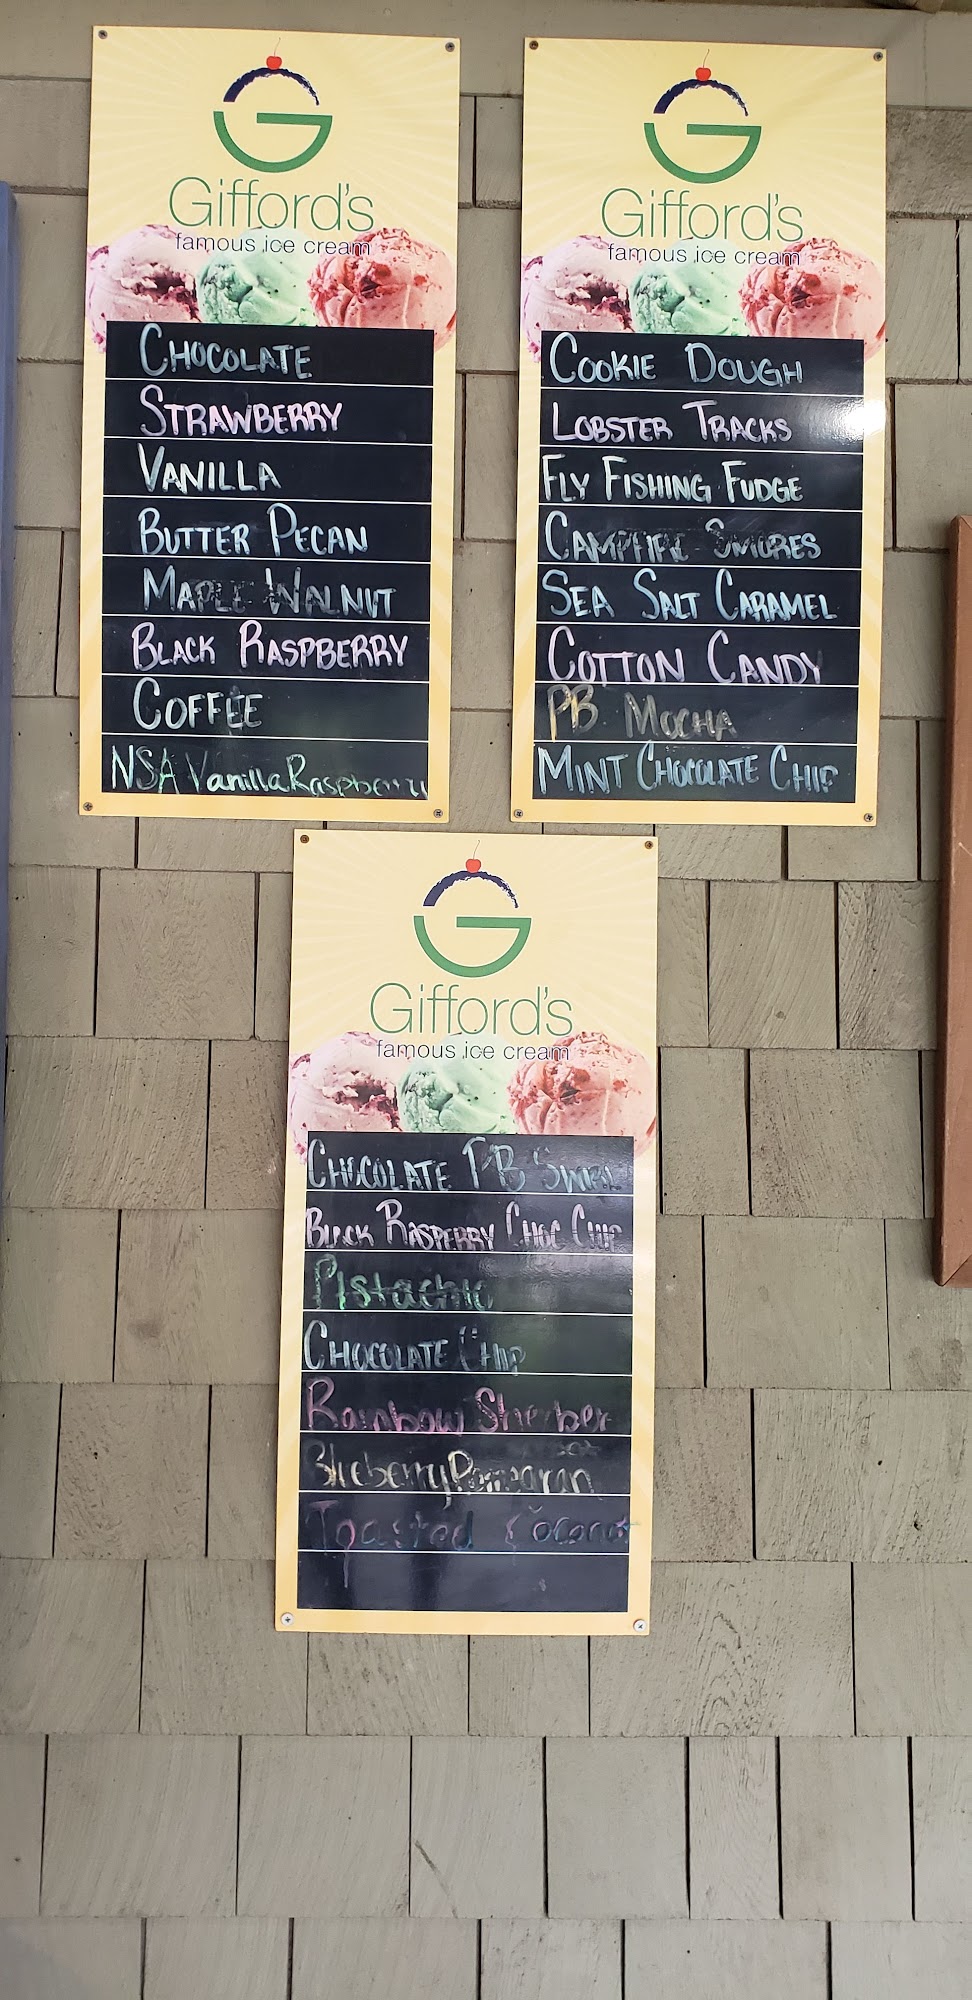 Gifford's
famous ice cream
CHOCOLATE
STRAWBERRY
VANILLA
BUTTER PECAN
MAPLE WALNUT
BLACK RASPBERRY
COFFEE
NSA Vanilla Raspberry
Gifford's
famous ice cream
COOKIE DOUGH
LOBSTER TRACKS
FLY FISHING FUDGE
CAMPFIRE SMORES
SEA SALT CARAMEL
COTTON CANDY
PB MOCHA
MINT CHOCOLATE CHIP
Gifford's
famous ice cream
CHOCOLATE PB SWIRL
BLACK RASPERRY CHOC CHIP
Pistachio
CHOCOLATE CHIP
Rainbow Sherbet
Blueberry
Toasted Coconut